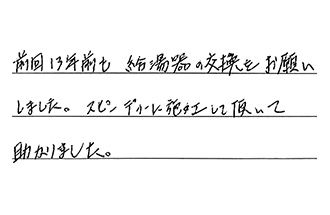 前回13年前も 給湯器の交換をお願い
しました。スピーディーに施工して頂いて
助かりました。